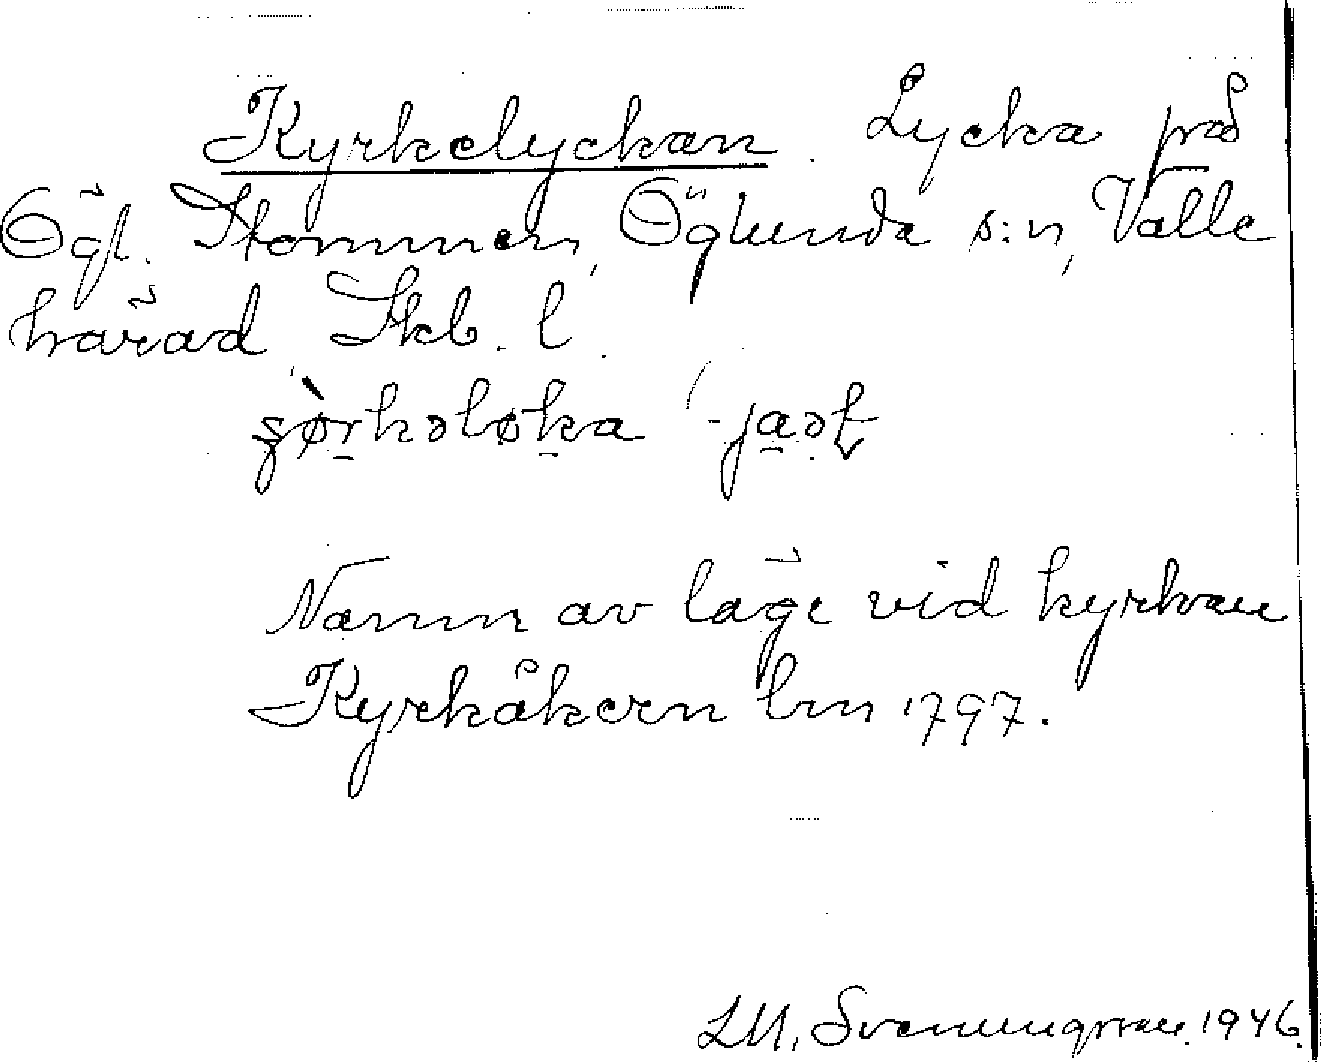 Kyrkelyckan. Lycka på
Ögl. Stommen, Öglunda s:n, Valle
härad, Skb. l.
Namn av läge vid kyrkan
Kyrkåkern lm 1797.
LM. Svenungsson. 1946.